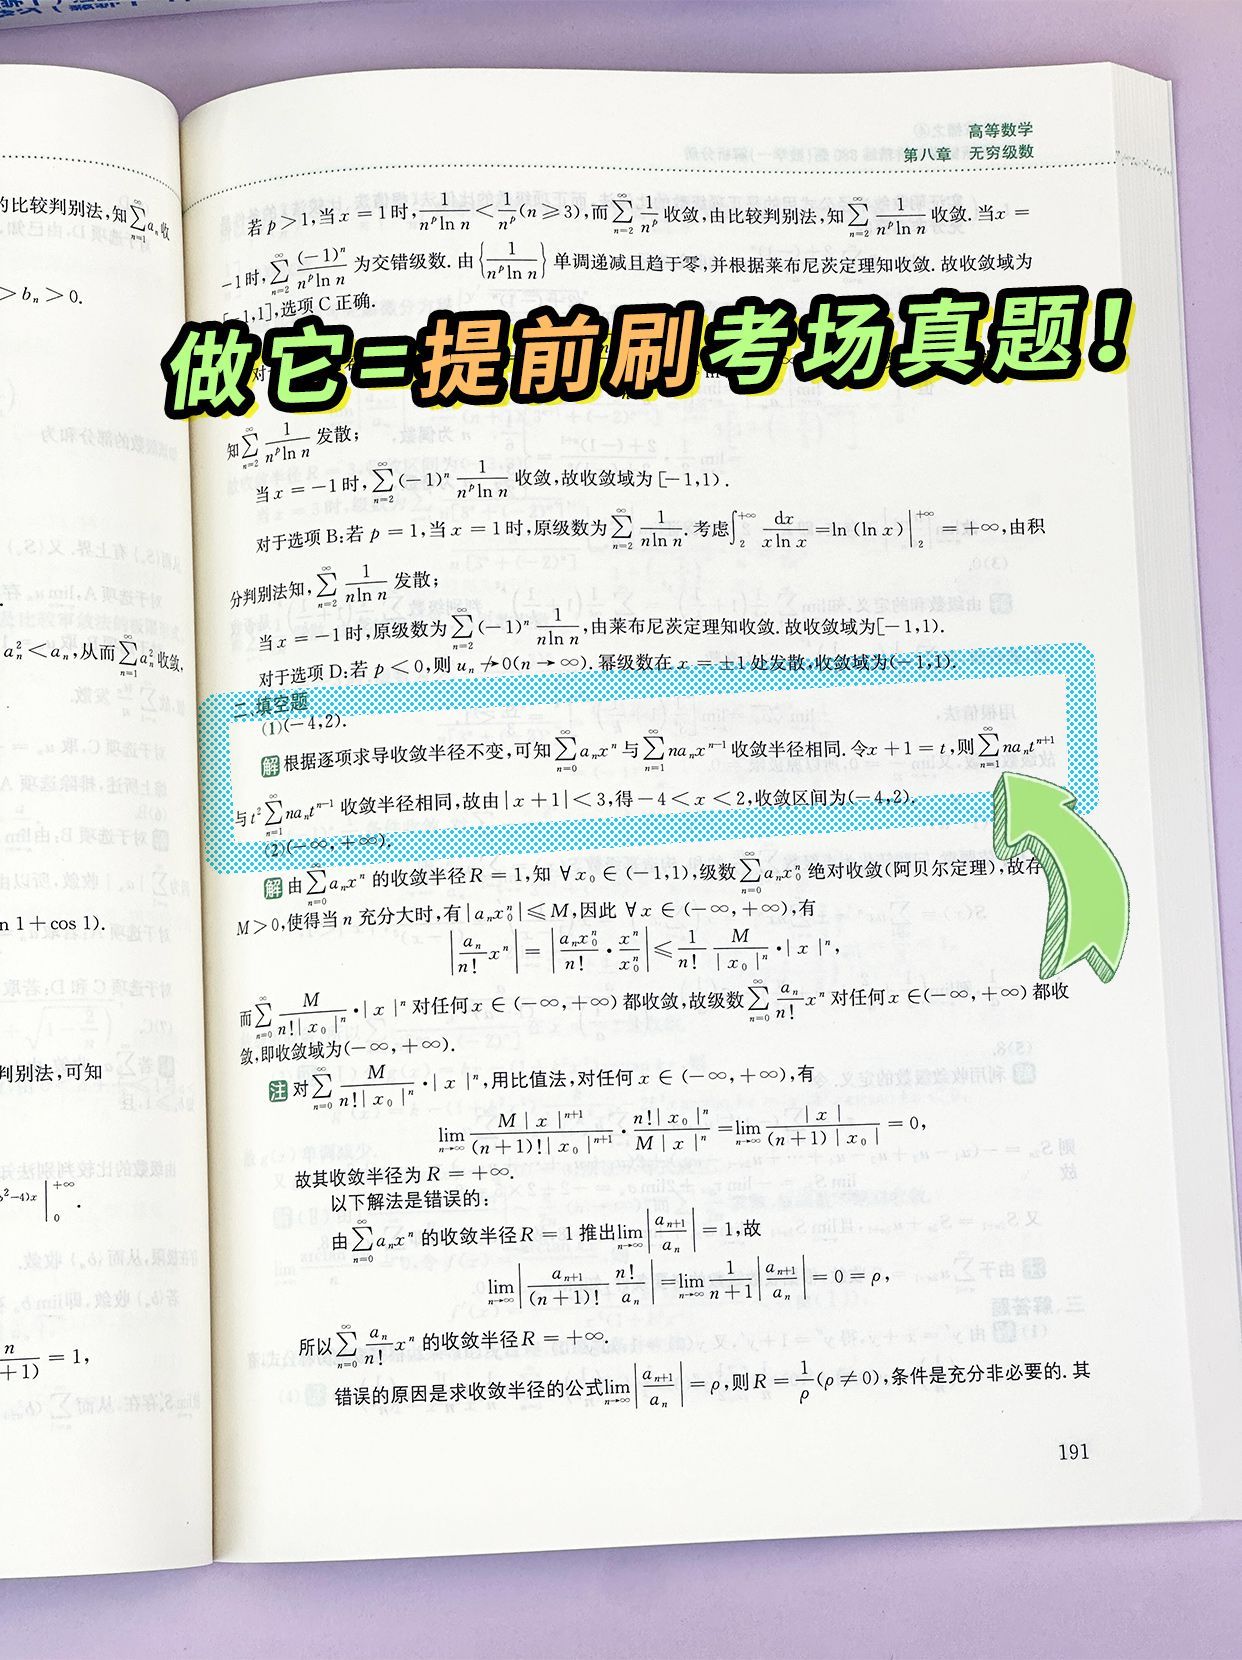 的比较判别法,知∑_{n=1}^{∞} a_n 收
> b_n > 0.
a_n^2 < a_n,从而∑_{n=1}^{∞} a_n^2 收敛,
n 1 + cos 1).
判别法,可知
高等数学
第八章 无穷级数
若 p > 1,当 x = 1 时, \frac{1}{n^p ln n} < \frac{1}{n^p}(n ≥ 3),而∑_{n=2}^{∞} \frac{1}{n^p} 收敛,由比较判别法,知∑_{n=2}^{∞} \frac{1}{n^p ln n} 收敛. 当 x =
-1 时,∑_{n=2}^{∞} \frac{(-1)^n}{n^p ln n} 为交错级数. 由{\frac{1}{n^p ln n}} 单调递减且趋于零,并根据莱布尼茨定理知收敛. 故收敛域为
[-1,1],选项 C 正确.
做它=提前刷考场真题!
知∑_{n=2}^{∞} \frac{1}{n^p ln n} 发散;
当 x = -1 时,∑_{n=2}^{∞} (-1)^n \frac{1}{n^p ln n} 收敛,故收敛域为 [-1,1).
对于选项 B:若 p = 1,当 x = 1 时,原级数为∑_{n=2}^{∞} \frac{1}{nln n}. 考虑∫_2^{+∞} \frac{dx}{xln x} = ln (ln x)|_2^{+∞} = +∞,由积
分判别法知,∑_{n=2}^{∞} \frac{1}{nln n} 发散;
当 x = -1 时,原级数为∑_{n=2}^{∞} (-1)^n \frac{1}{nln n},由莱布尼茨定理知收敛. 故收敛域为[-1,1).
对于选项 D:若 p < 0,则 u_n ↛ 0(n → ∞). 幂级数在 x = ±1 处发散,收敛域为(-1,1).
二、填空题
(1)(-4,2).
解 根据逐项求导收敛半径不变,可知∑_{n=0}^{∞} a_n x^n 与∑_{n=1}^{∞} na_n x^{n-1} 收敛半径相同. 令 x + 1 = t,则∑_{n=1}^{∞} na_n t^{n+1}
与 t^2∑_{n=1}^{∞} na_n t^{n-1} 收敛半径相同,故由 | x + 1 | < 3,得 -4 < x < 2,收敛区间为(-4,2).
(2)(-∞, +∞).
解 由∑_{n=0}^{∞} a_n x^n 的收敛半径 R = 1,知 ∀ x_0 ∈ (-1,1),级数∑_{n=0}^{∞} a_n x_0^n 绝对收敛(阿贝尔定理),故存
M > 0,使得当 n 充分大时,有 | a_n x_0^n | ≤ M,因此 ∀ x ∈ (-∞, +∞),有
|\frac{a_n}{n!} x^n| = |\frac{a_n x_0^n}{n!} · \frac{x^n}{x_0^n}| ≤ \frac{1}{n!} \frac{M}{| x_0 |^n} · | x |^n,
而∑_{n=0}^{∞} \frac{M}{n! | x_0 |^n} · | x |^n 对任何 x ∈ (-∞, +∞) 都收敛,故级数∑_{n=0}^{∞} \frac{a_n}{n!} x^n 对任何 x ∈(-∞, +∞) 都收
敛,即收敛域为(-∞, +∞).
注 对∑_{n=0}^{∞} \frac{M}{n! | x_0 |^n} · | x |^n,用比值法,对任何 x ∈ (-∞, +∞),有
lim_{n→∞} \frac{M | x |^{n+1}}{(n + 1)! | x_0 |^{n+1}} · \frac{n! | x_0 |^n}{M | x |^n} = lim_{n→∞} \frac{| x |}{(n + 1) | x_0 |} = 0,
故其收敛半径为 R = +∞.
以下解法是错误的:
由∑_{n=0}^{∞} a_n x^n 的收敛半径 R = 1 推出lim_{n→∞} |\frac{a_{n+1}}{a_n}| = 1,故
lim_{n→∞} |\frac{a_{n+1}}{(n + 1)!} \frac{n!}{a_n}| = lim_{n→∞} \frac{1}{n + 1} |\frac{a_{n+1}}{a_n}| = 0 = ρ,
所以∑_{n=0}^{∞} \frac{a_n}{n!} x^n 的收敛半径 R = +∞.
错误的原因是求收敛半径的公式lim_{n→∞} |\frac{a_{n+1}}{a_n}| = ρ,则 R = \frac{1}{ρ}(ρ ≠ 0),条件是充分非必要的. 其
191